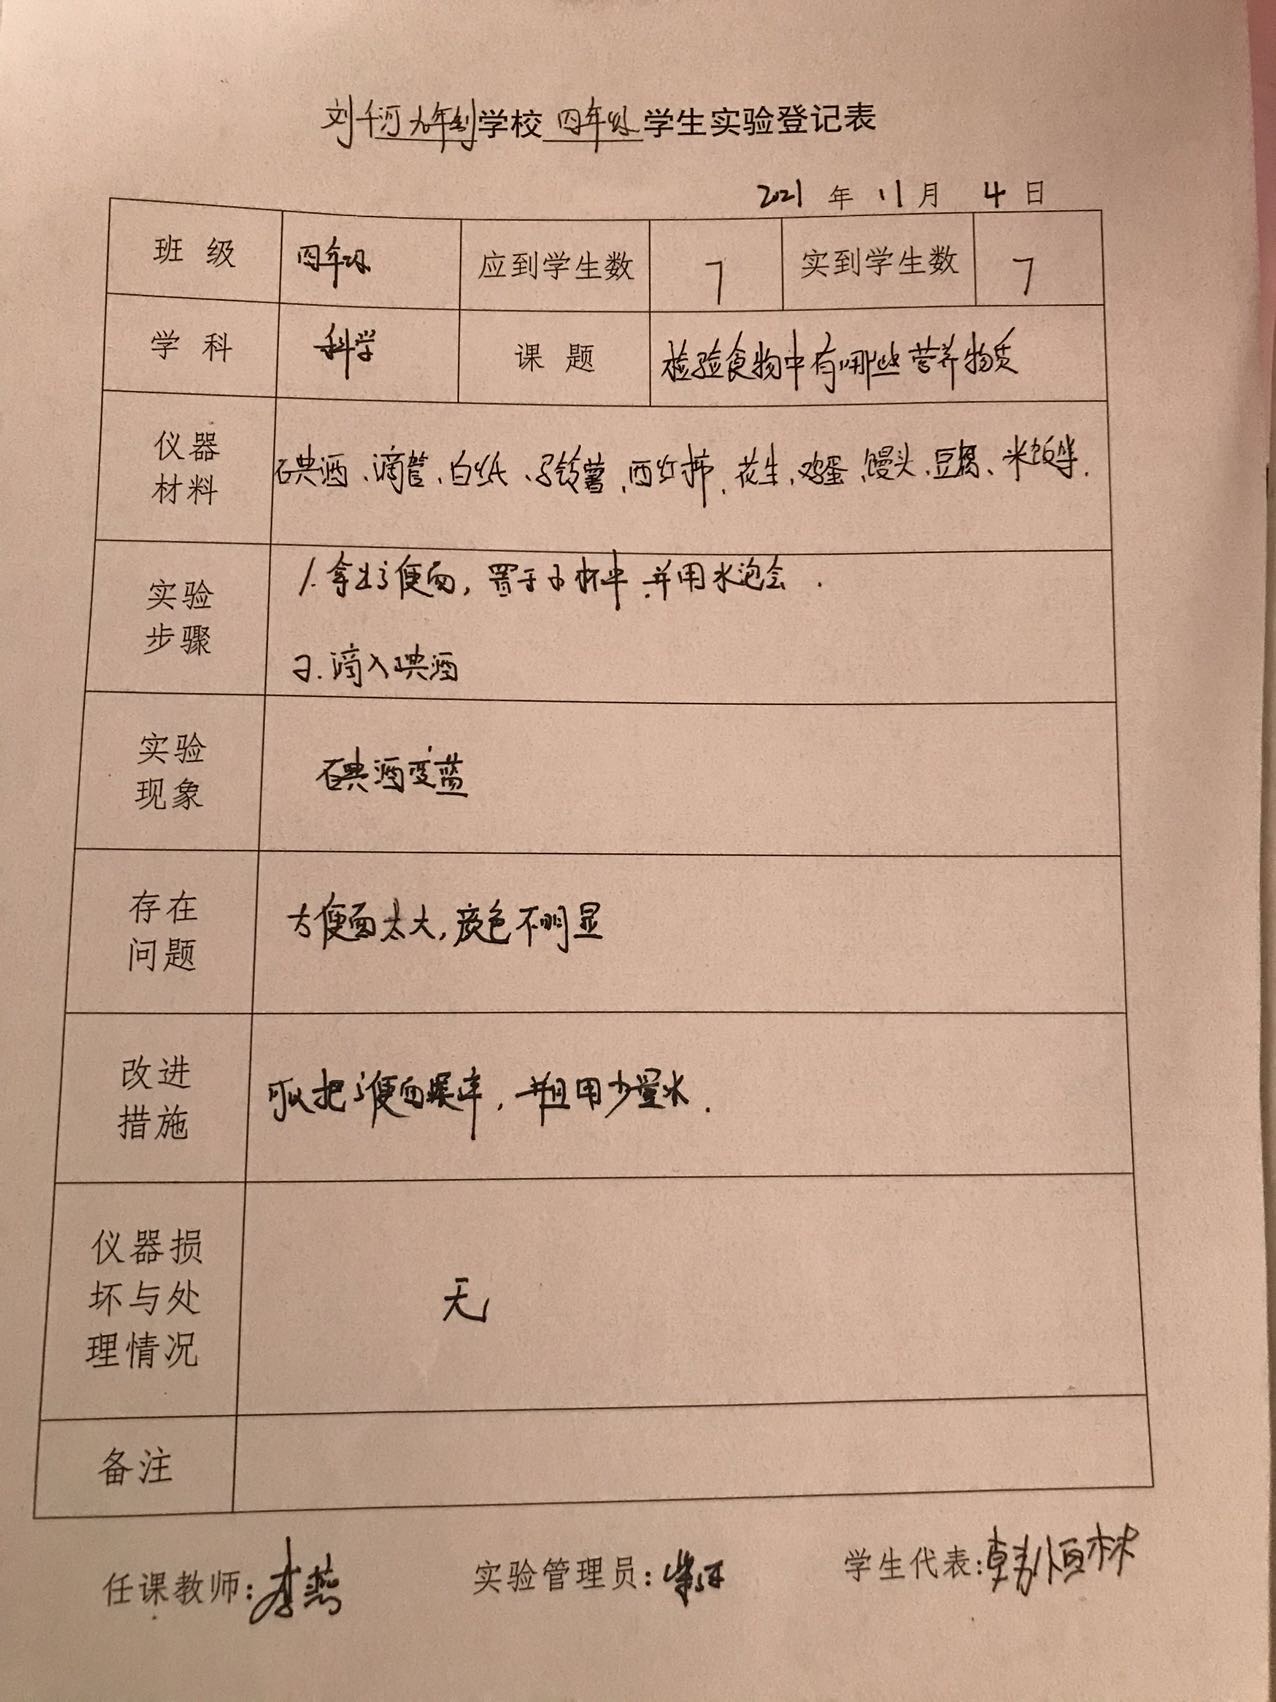 刘千河九年制学校 四年级 学生实验登记表
2021 年 11 月 4 日
班 级 四年级 应到学生数 7 实到学生数 7
学 科 科学 课 题 检验食物中有哪些营养物质
仪器
材料
碘酒、滴管、白纸、马铃薯、西红柿、花生、鸡蛋、馒头、豆腐、米饭等.
实验
步骤
1. 拿出方便面, 置于小杯中 并用水泡会.
2. 滴入碘酒
实验
现象
碘酒变蓝
存在
问题
方便面太大, 颜色不明显
改进
措施
可以把方便面揉碎, 并且用少量水.
仪器损
坏与处
理情况
无
备注
任课教师: 李燕 实验管理员: 学生代表: 韩恒林